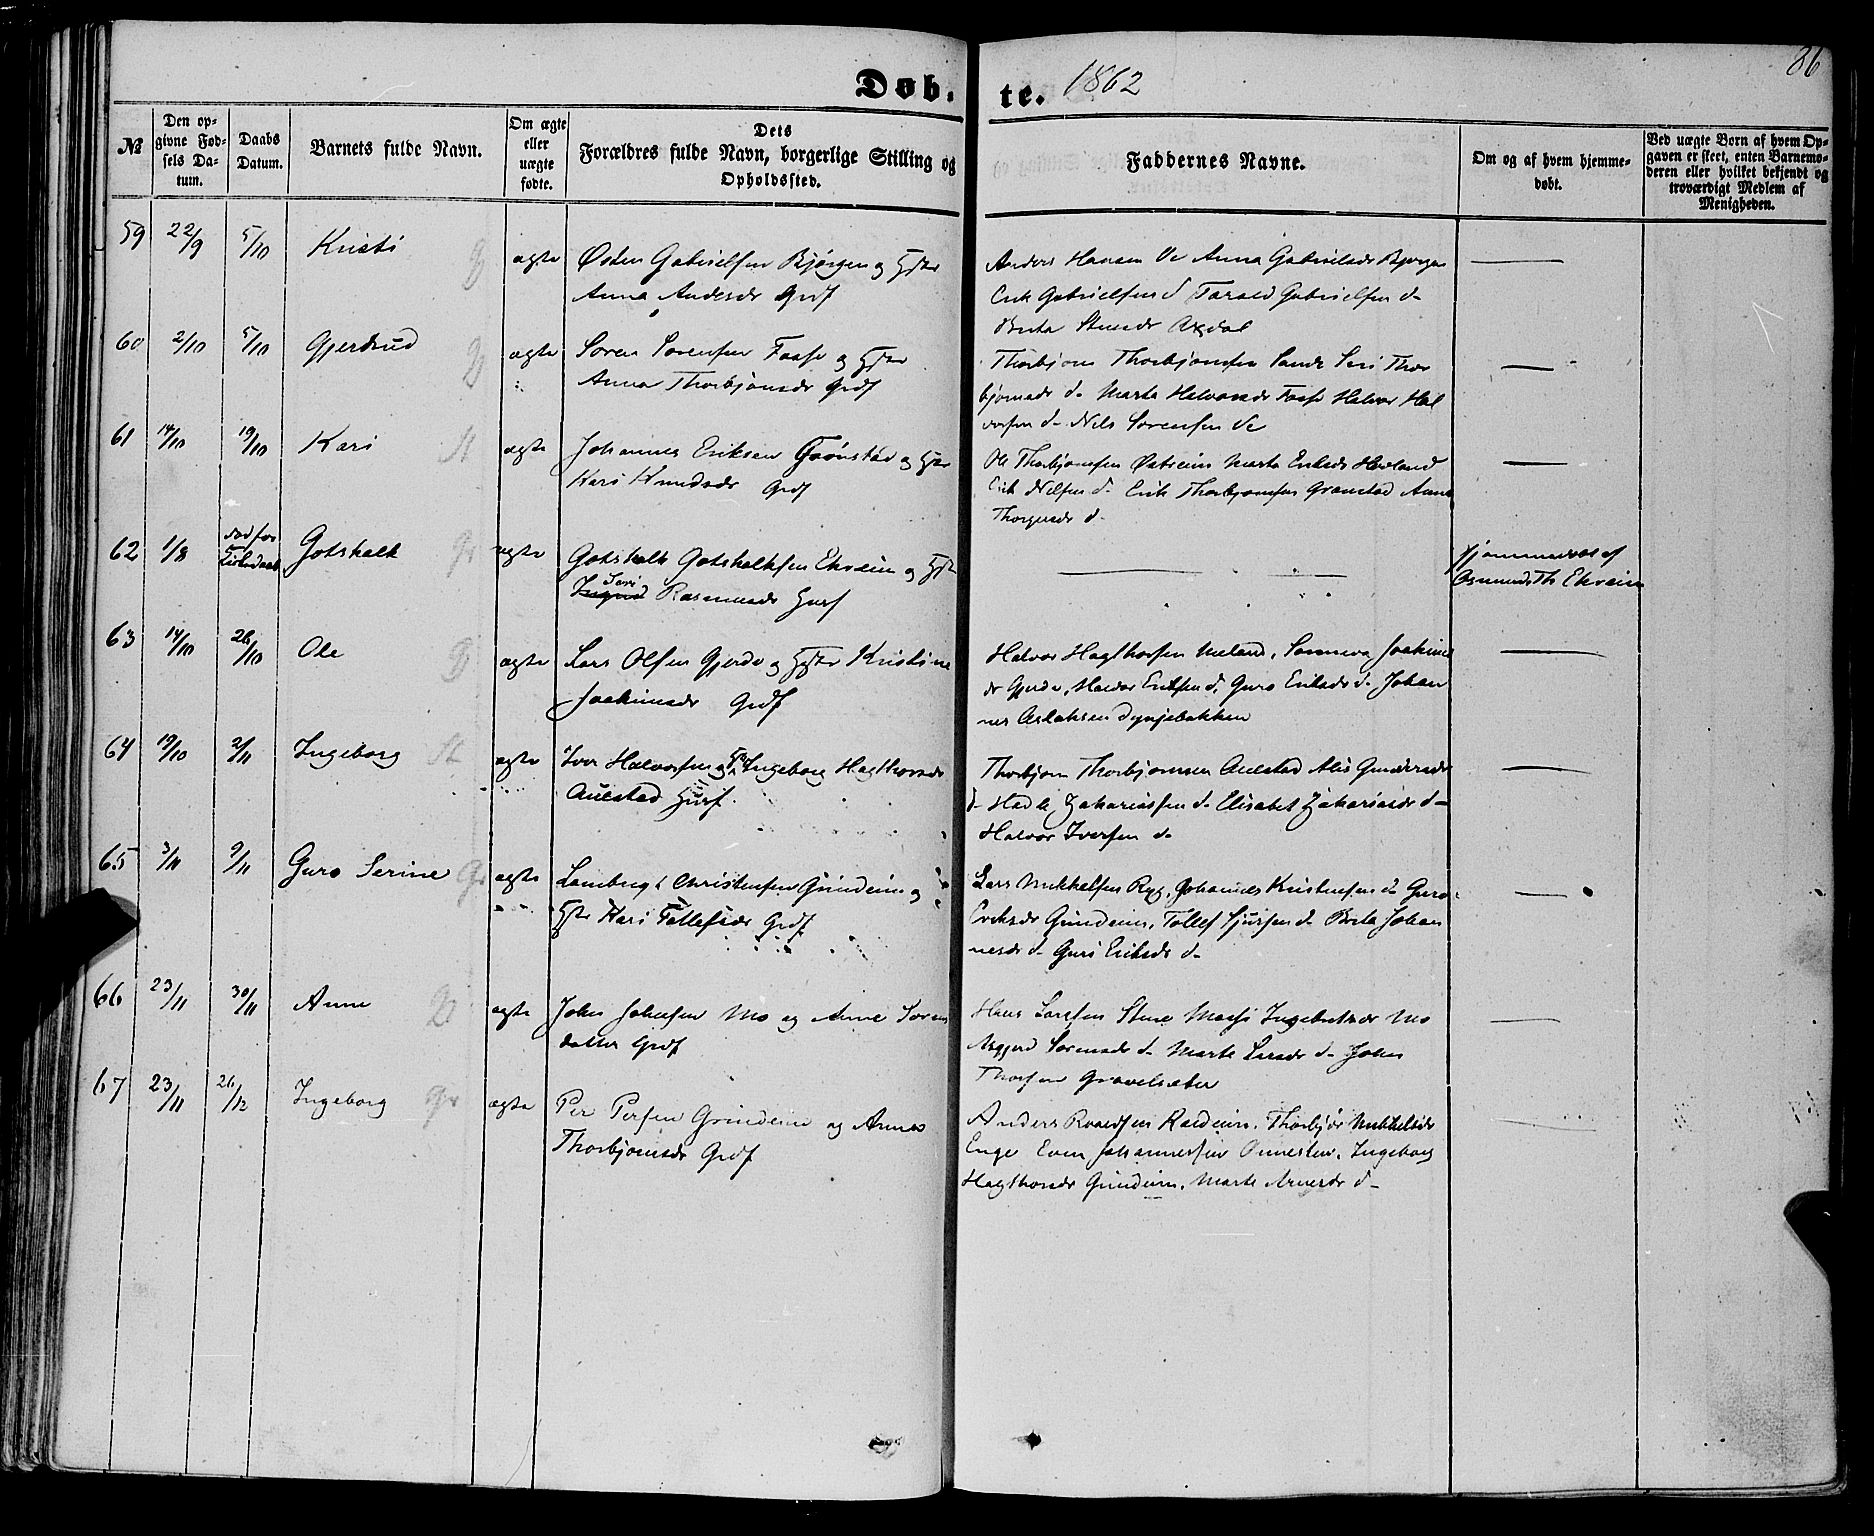 86
Døb. te. 1862
№
Den op-
givne Fød-
sels Da-
tum.
Daabs
Datum.
Barnets fulde Navn.
Om ægte
eller
uægte
fødte.
Dets
Forældres fulde Navn, borgerlige Stilling og
Opholdssted.
Faddernes Navne.
Om og af hvem hjemme-
døbt.
Ved uægte Børn af hvem Op-
gaven er skeet, enten Barnemo-
deren eller hvilket bekjendt og
troværdigt Medlem af
Menigheden.
59 22/9 5/10 Kristi ægte
Østen Gabrielsen Bjørgen og Hstr
Anna Andersdr Grdf
Anders Hansen Anna Gabrielsdr Bjørgen
Erik Gabrielsen d Tarald Gabrielsen d-
Brita
60 2/10 5/10 Gjertrud ægte
Søren Sørensen og Hstr
Anna Thorbjørnsdr Grdf
Thorbjørn Thorbjørnsen Sande Siri Thor
bjørnsdr d- Marta Halvorsdr Halvor Hal
vorsen d- Nils Sørensen de
61 14/10 19/10 Kari ægte
Johannes Eriksen Grønstad og Hstr
Kari Knudsdr Grdf
Ole Thorbjørnsen Østreim Marta Eriksdr Havland
Erik Nilsen d- Erik Thorbjørnsen Grønstad Anna
d-
62 1/8 død før
Kirkedaab Gotskalk ægte
Gotskalk Gotskalksen Ekreim og Hstr
Siri
Ingrid Rasmusdr Husf
Hjemmedøbt af
Osmund Th Ekreim
63 14/10 26/10 Ole ægte
Lars Olsen Gjerde og Hstr Kristine
Joakimsdr Grdf
Halvor Hagthorsen Meland, Sanneva Joakims
dr Gjerde, Halvor Eriksen d, Guro Eriksdr d- Johan
nes Aslaksen Dynjebakken
64 19/10 2/11 Ingeborg ægte
Iver Halvorsen og Hstr Ingeborg Hagthorsdr
Aulstad Husf.
Thorbjørn Thorbjørnsen Aulstad Alis Gundersdr
d- Hadle Zakariassen d- Elisabet Zakariasdr d-
Halvor Iversen d-
65 3/11 9/11 Guro Serine ægte
Lamberg Christensen Grindeim og
Hstr Kari Tollefsdr Grdf
Lars Mikkelsen Ryg, Johannes Kristensen d- Guro
Eriksdr Grindeim, Tollef Sjursen d- Brita Johan
nesdr d- Guri Eriksdr d-
66 23/11 30/11 Anne ægte
John Johnsen Mo og Anne Sørens
datter Grdf
Hans Larsen Stene Ingebretsdr Mo
Asgjerd Sørensdr d- Marta Larsdr d- John
Thorsen Gravelsæter
67 23/11 26/12 Ingeborg ægte
Per Persen Grindeim og Anna
Thorbjørnsdr Grdf
Anders Roaldsen Mikkelsdr
Enge Even Johannessen Ingeborg
Hagthorsdr Grindeim, Marta Arnesdr d-